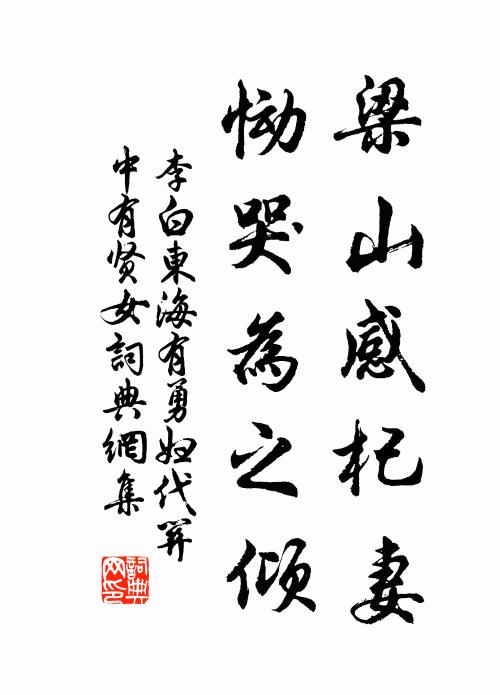 梁山感杞妻
恸哭為之倾
李白東海有勇妇代関
中有贤女詞典網集
詞典
网印